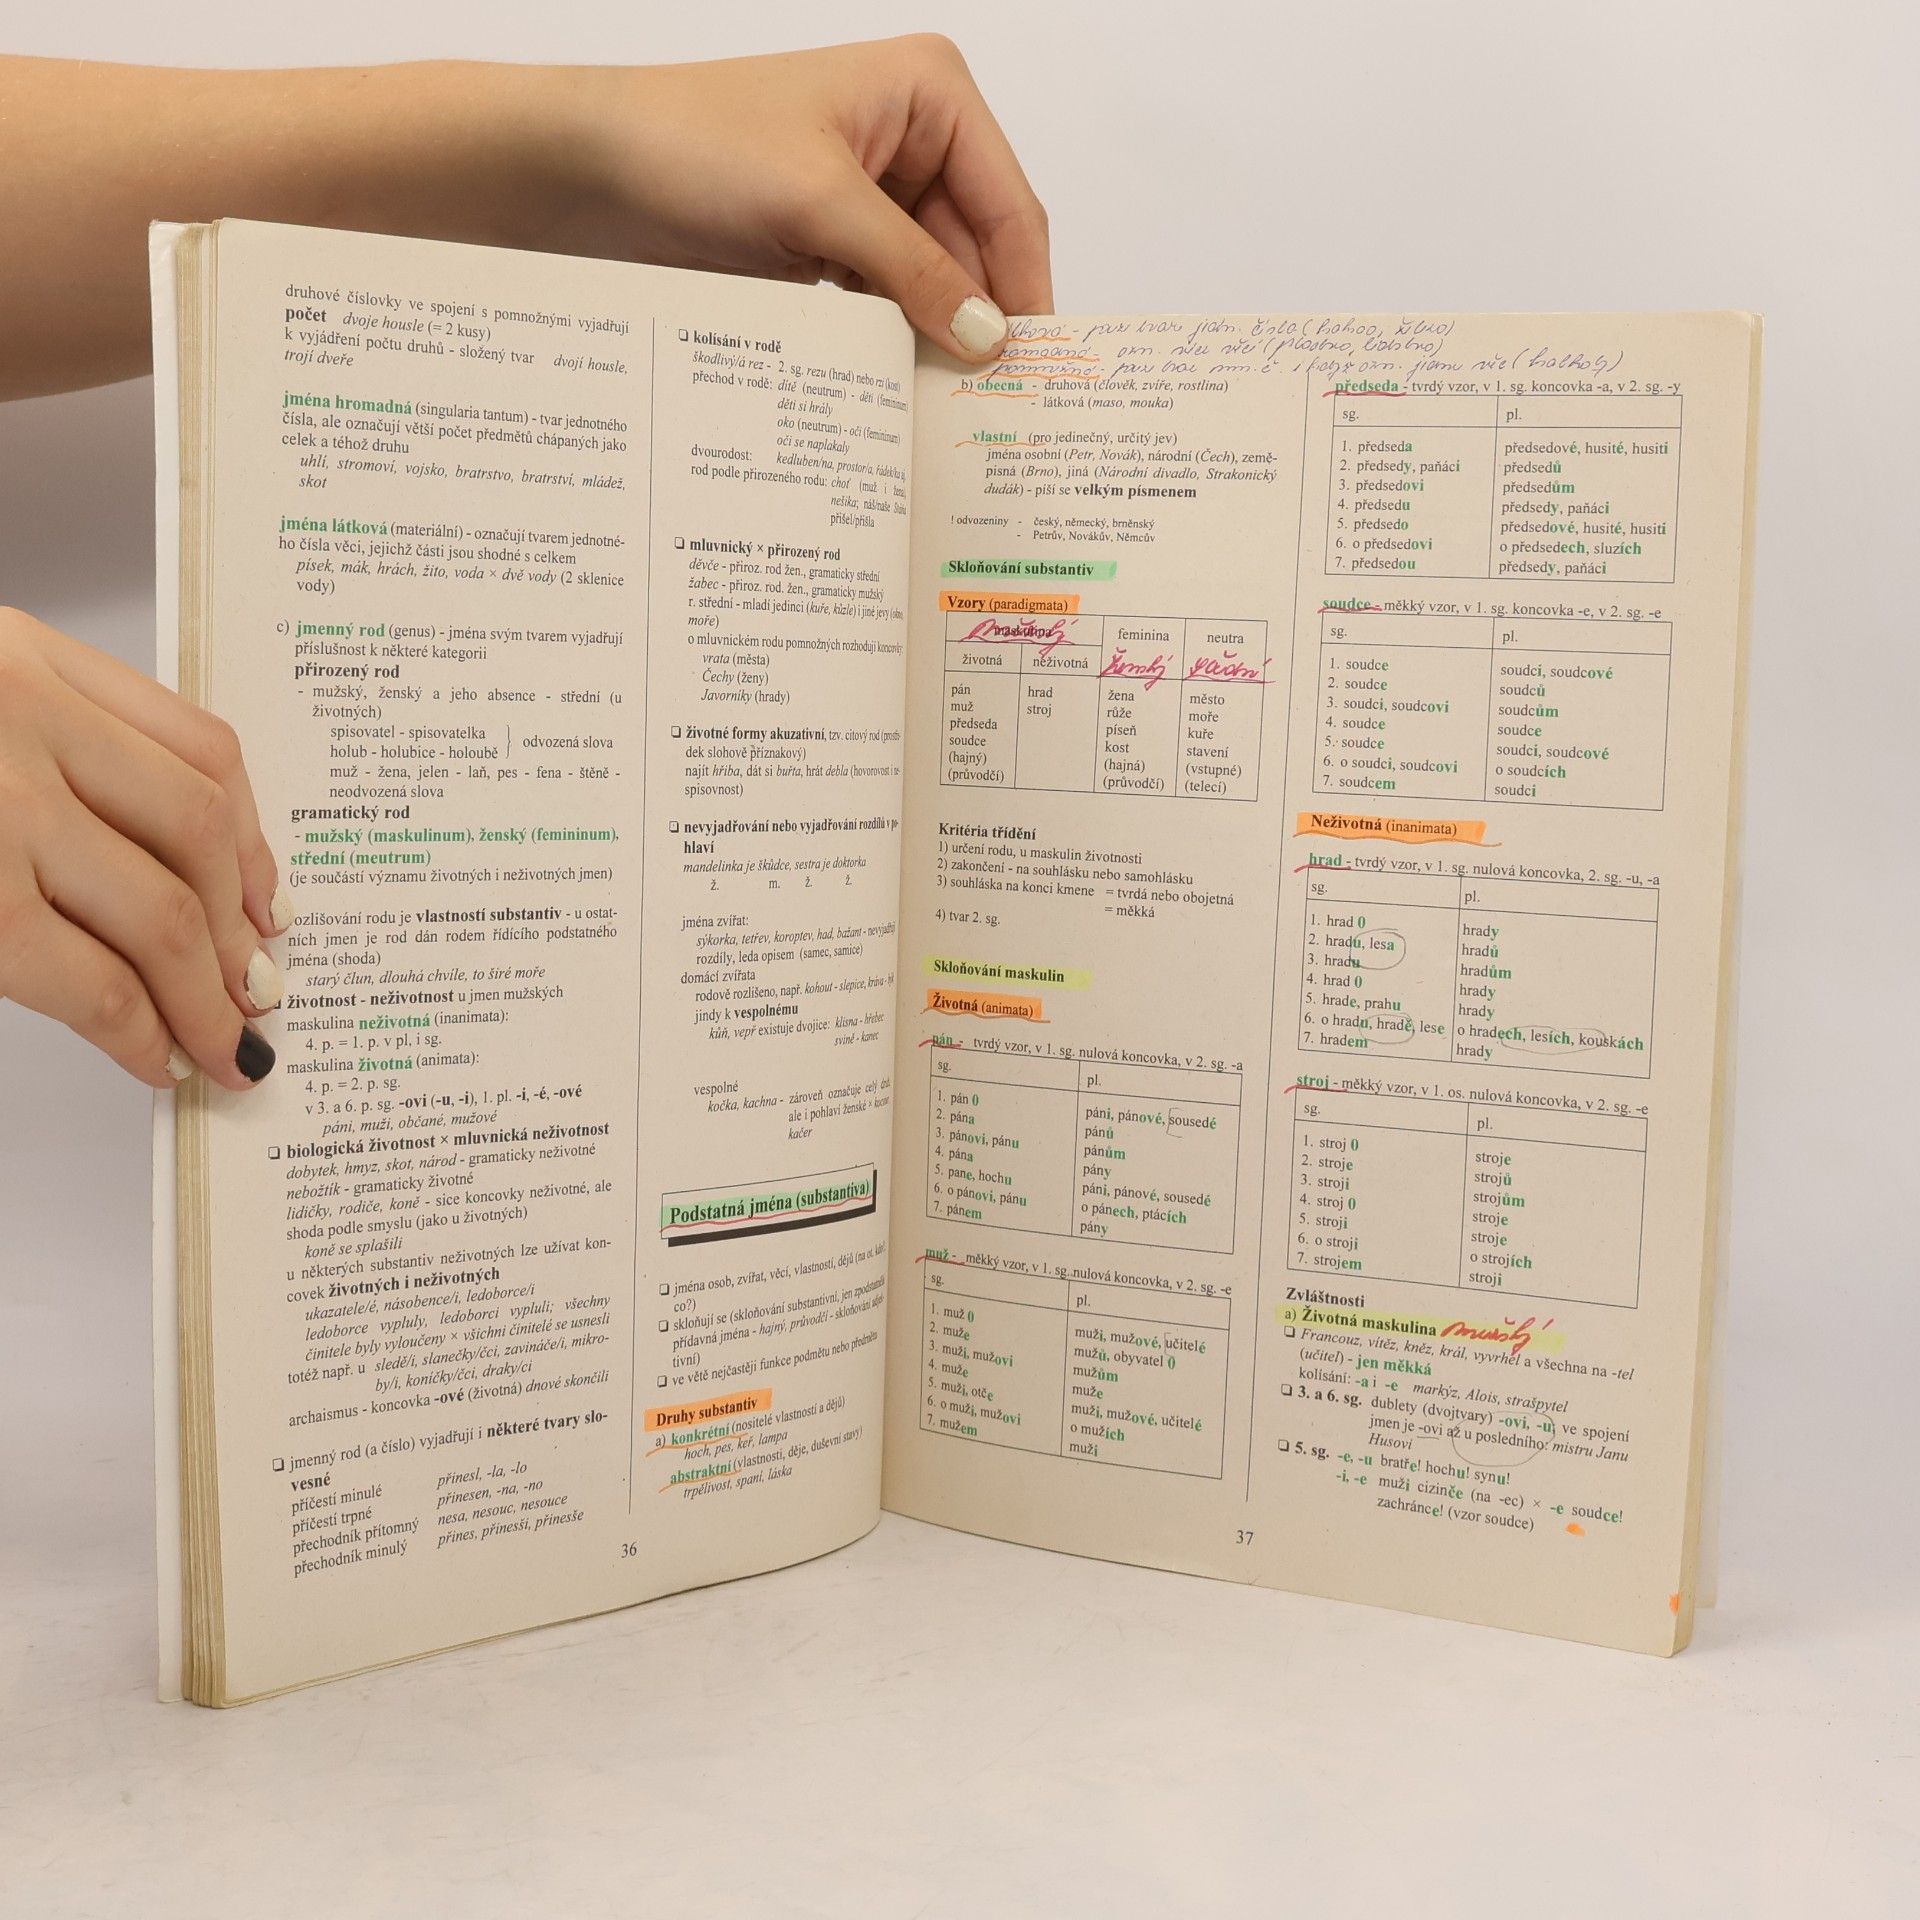 druhové číslovky ve spojení s pomnožnými vyjadřují
počet dvoje housle (= 2 kusy)
k vyjádření počtu druhů - složený tvar dvojí housle,
trojí dveře
jména hromadná (singularia tantum) - tvar jednotného
čísla, ale označují větší počet předmětů chápaných jako
celek a téhož druhu
uhlí, stromoví, vojsko, bratrstvo, bratrství, mládež,
skot
jména látková (materiální) - označují tvarem jednotné-
ho čísla věci, jejichž části jsou shodné s celkem
písek, mák, hrách, žito, voda × dvě vody (2 sklenice
vody)
c) jmenný rod (genus) - jména svým tvarem vyjadřují
příslušnost k některé kategorii
přirozený rod
- mužský, ženský a jeho absence - střední (u
životných)
spisovatel - spisovatelka
holub - holubice - holoubě } odvozená slova
muž - žena, jelen - laň, pes - fena - štěně -
neodvozená slova
gramatický rod
- mužský (maskulinum), ženský (femininum),
střední (meutrum)
(je součástí významu životných i neživotných jmen)
ozlišování rodu je vlastností substantiv - u ostat-
ních jmen je rod dán rodem řídícího podstatného
jména (shoda)
starý člun, dlouhá chvíle, to širé moře
životnost - neživotnost u jmen mužských
maskulina neživotná (inanimata):
4. p. = 1. p. v pl, i sg.
maskulina životná (animata):
4. p. = 2. p. sg.
v 3. a 6. p. sg. -ovi (-u, -i), 1. pl. -i, -é, -ové
páni, muži, občané, mužové
❏ biologická životnost × mluvnická neživotnost
dobytek, hmyz, skot, národ - gramaticky neživotné
nebožtík - gramaticky životné
lidičky, rodiče, koně - sice koncovky neživotné, ale
shoda podle smyslu (jako u životných)
koně se splašili
u některých substantiv neživotných lze užívat kon-
covek životných i neživotných
ukazatele/é, násobence/i, ledoborce/i
ledoborce vypluly, ledoborci vypluli; všechny
činitele byly vyloučeny × všichni činitelé se usnesli
totéž např. u sledě/i, slanečky/čci, zavináče/i, mikro-
by/i, koníčky/čci, draky/ci
archaismus - koncovka -ové (životná) dnové skončili
❏ jmenný rod (a číslo) vyjadřují i některé tvary slo-
vesné
příčestí minulé přinesl, -la, -lo
příčestí trpné přinesen, -na, -no
přechodník přítomný nesa, nesouc, nesouce
přechodník minulý přines, přinesši, přinesše
36
❏ kolísání v rodě
škodlivý/á rez - 2. sg. rezu (hrad) nebo rzi (kost)
přechod v rodě: dítě (neutrum) - děti (femininum)
děti si hrály
oko (neutrum) - oči (femininum)
oči se naplakaly
dvourodost: kedluben/na, prostor/a, řádek/ka
rod podle přirozeného rodu: choť (muž i žena),
nešika; náš/naše
přišel/přišla
❏ mluvnický × přirozený rod
děvče - přiroz. rod žen., gramaticky střední
žabec - přiroz. rod. žen., gramaticky mužský
r. střední - mladí jedinci (kuře, kůzle) i jiné jevy (okno,
moře)
o mluvnickém rodu pomnožných rozhodují koncovky:
vrata (města)
Čechy (ženy)
Javorníky (hrady)
❏ životné formy akuzativní, tzv. citový rod (prostře-
dek slohově příznakový)
najít hřiba, dát si buřta, hrát debla (hovorovost i ne-
spisovnost)
❏ nevyjadřování nebo vyjadřování rozdílů v po-
hlaví
mandelinka je škůdce, sestra je doktorka
ž. m. ž. ž.
jména zvířat:
sýkorka, tetřev, koroptev, had, bažant - nevyjadřují
rozdíly, leda opisem (samec, samice)
domácí zvířata
rodově rozlišeno, např. kohout - slepice, kráva - býk
jindy k vespolnému
kůň, vepř existuje dvojice: klisna - hřebec
svině - kanec
vespolné
kočka, kachna - zároveň označuje celý druh,
ale i pohlaví ženské × kocour
kačer
Podstatná jména (substantiva)
❏ jména osob, zvířat, věcí, vlastností, dějů (na ot. kdo?
co?)
❏ skloňují se (skloňování substantivní, jen zpodstatnělá
přídavná jména - hajný, průvodčí - skloňování adjek-
tivní)
❏ ve větě nejčastěji funkce podmětu nebo předmětu
Druhy substantiv
a) konkrétní (nositelé vlastností a dějů)
hoch, pes, keř, lampa
abstraktní (vlastnosti, děje, duševní stavy)
trpělivost, spaní, láska
- pouze tvar jedn. čísla
- ozn. více věcí
pomnožná - pouze tvar mn. č. i když ozn. jednu věc (kalhoty)
b) obecná - druhová (člověk, zvíře, rostlina)
- látková (maso, mouka)
vlastní (pro jedinečný, určitý jev)
jména osobní (Petr, Novák), národní (Čech), země-
pisná (Brno), jiná (Národní divadlo, Strakonický
dudák) - píší se velkým písmenem
! odvozeniny - český, německý, brněnský
- Petrův, Novákův, Němcův
Skloňování substantiv
Vzory (paradigmata)
maskulina mužský feminina neutra
životná neživotná ženský střední
pán hrad žena město
muž stroj růže moře
předseda píseň kuře
soudce kost stavení
(hajný) (hajná) (vstupné)
(průvodčí) (průvodčí) (telecí)
Kritéria třídění
1) určení rodu, u maskulin životnosti
2) zakončení - na souhlásku nebo samohlásku
3) souhláska na konci kmene = tvrdá nebo obojetná
= měkká
4) tvar 2. sg.
Skloňování maskulin
Životná (animata)
pán - tvrdý vzor, v 1. sg. nulová koncovka, v 2. sg. -a
sg. pl.
1. pán 0 páni, pánové, sousedé
2. pána pánů
3. pánovi, pánu pánům
4. pána pány
5. pane, hochu páni, pánové, sousedé
6. o pánovi, pánu o pánech, ptácích
7. pánem pány
muž - měkký vzor, v 1. sg. nulová koncovka, v 2. sg. -e
sg. pl.
1. muž 0 muži, mužové, učitelé
2. muže mužů, obyvatel 0
3. muži, mužovi mužům
4. muže muže
5. muži, otče muži, mužové, učitelé
6. o muži, mužovi o mužích
7. mužem muži
předseda - tvrdý vzor, v 1. sg. koncovka -a, v 2. sg. -y
sg. pl.
1. předseda předsedové, husité, husiti
2. předsedy, paňáci předsedů
3. předsedovi předsedům
4. předsedu předsedy, paňáci
5. předsedo předsedové, husité, husiti
6. o předsedovi o předsedech, sluzích
7. předsedou předsedy, paňáci
soudce - měkký vzor, v 1. sg. koncovka -e, v 2. sg. -e
sg. pl.
1. soudce soudci, soudcové
2. soudce soudců
3. soudci, soudcovi soudcům
4. soudce soudce
5. soudce soudci, soudcové
6. o soudci, soudcovi o soudcích
7. soudcem soudci
Neživotná (inanimata)
hrad - tvrdý vzor, v 1. sg. nulová koncovka, 2. sg. -u, -a
sg. pl.
1. hrad 0 hrady
2. hradu, lesa hradů
3. hradu hradům
4. hrad 0 hrady
5. hrade, prahu hrady
6. o hradu, hradě, lese o hradech, lesích, kouskách
7. hradem hrady
stroj - měkký vzor, v 1. os. nulová koncovka, v 2. sg. -e
sg. pl.
1. stroj 0 stroje
2. stroje strojů
3. stroji strojům
4. stroj 0 stroje
5. stroji stroje
6. o stroji o strojích
7. strojem stroji
Zvláštnosti
a) Životná maskulina mužský
❏ Francouz, vítěz, kněz, král, vyvrhel a všechna na -tel
(učitel) - jen měkká
kolísání: -a i -e markýz, Alois, strašpytel
❏ 3. a 6. sg. dublety (dvojtvary) -ovi, -u, ve spojení
jmen je -ovi až u posledního: mistru Janu
Husovi
❏ 5. sg. -e, -u bratře! hochu! synu!
-i, -e muži cizinče (na -ec) × -e soudce!
zachránce! (vzor soudce)
37